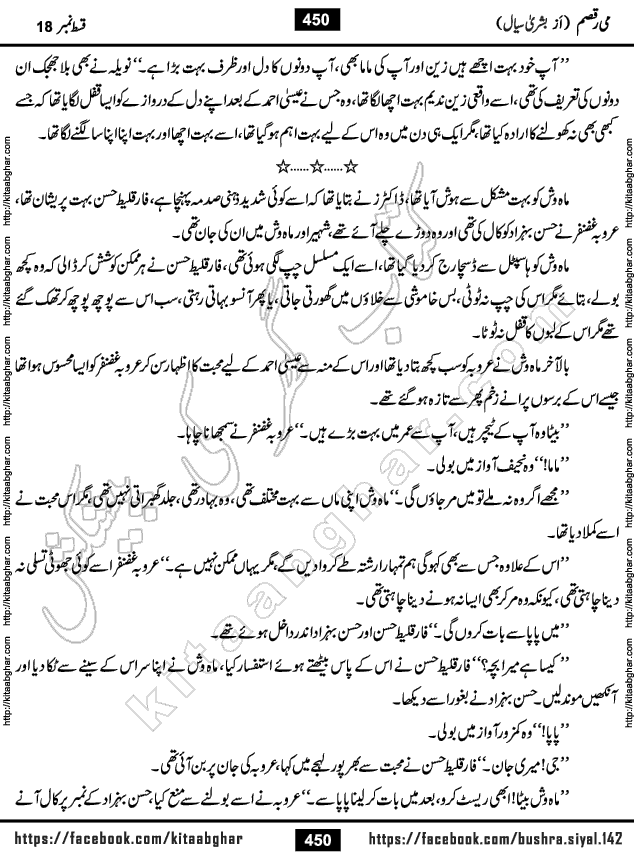 می رقصم (از بشریٰ سیال)
450
قسط نمبر 18
’’آپ خود بہت اچھے ہیں زین اور آپ کی ماما بھی، آپ دونوں کا دل اور ظرف بہت بڑا ہے۔‘‘ نویلہ نے بھی بلا جھجک ان
دونوں کی تعریف کی تھی، اسے واقعی زین ندیم بہت اچھا لگا تھا، وہ جس نے عیسیٰ احمد کے بعد اپنے دل کے دروازے کو ایسا قفل لگایا تھا کہ جسے
کبھی بھی نہ کھولنے کا ارادہ کیا تھا، مگر ایک ہی دن میں وہ اس کے لیے بہت اہم ہو گیا تھا، اسے بہت اچھا اور بہت اپنا اپنا سا لگنے لگا تھا۔
☆......☆......☆
ماہ وش کو بہت مشکل سے ہوش آیا تھا، ڈاکٹرز نے بتایا تھا کہ اسے کوئی شدید ذہنی صدمہ پہنچا ہے، فارقلیط حسن بہت پریشان تھا،
عروبہ غضنفر نے حسن بہزاد کو کال کی تھی اور وہ دوڑے چلے آئے تھے، شہیر اور ماہ وش میں ان کی جان تھی۔
ماہ وش کو ہاسپٹل سے ڈسچارج کر دیا گیا تھا، اسے ایک مسلسل چپ لگی ہوئی تھی، فارقلیط حسن نے ہر ممکن کوشش کر ڈالی کہ وہ کچھ
بولے، بتائے مگر اس کی چپ نہ ٹوٹی، بس خاموشی سے خلاؤں میں گھورتی جاتی، یا پھر آنسو بہاتی رہتی، سب اس سے پوچھ پوچھ کر تھک گئے
تھے مگر اس کے لبوں کا قفل نہ ٹوٹا۔
بالآخر ماہ وش نے عروبہ کو سب کچھ بتا دیا تھا اور اس کے منہ سے عیسیٰ احمد کے لیے محبت کا اظہار سن کر عروبہ غضنفر کو ایسا محسوس ہوا تھا
جیسے اس کے برسوں پرانے زخم پھر سے تازہ ہو گئے تھے۔
’’بیٹا وہ آپ کے ٹیچر ہیں، آپ سے عمر میں بہت بڑے ہیں۔‘‘ عروبہ غضنفر نے سمجھانا چاہا۔
’’ماما!‘‘ وہ نحیف آواز میں بولی۔
’’مجھے اگر وہ نہ ملے تو میں مر جاؤں گی۔‘‘ ماہ وش اپنی ماں سے بہت مختلف تھی، وہ بہادر تھی، جلد گھبراتی نہیں تھی، مگر اس محبت نے
اسے کملا دیا تھا۔
’’اس کے علاوہ جس سے بھی کہو گی ہم تمہارا رشتہ طے کروا دیں گے، مگر یہاں ممکن نہیں ہے۔‘‘ عروبہ غضنفر اسے کوئی جھوٹی تسلی نہ
دینا چاہتی تھی، کیونکہ وہ مر کر بھی ایسا نہ ہونے دینا چاہتی تھی۔
’’میں پاپا سے بات کروں گی۔‘‘ فارقلیط حسن اور حسن بہزاد اندر داخل ہوئے تھے۔
’’کیسا ہے میرا بچہ؟‘‘ فارقلیط حسن نے اس کے پاس بیٹھتے ہوئے استفسار کیا، ماہ وش نے اپنا سر اس کے سینے سے ٹکا دیا اور
آنکھیں موند لیں۔ حسن بہزاد نے بغور اسے دیکھا۔
’’پاپا!‘‘ وہ کمزور آواز میں بولی۔
’’جی! میری جان۔‘‘ فارقلیط حسن نے محبت سے بھرپور لہجے میں کہا، عروبہ کی جان پر بن آئی تھی۔
’’ماہ وش بیٹا! ابھی ریسٹ کرو، بعد میں بات کر لینا پاپا سے۔‘‘ عروبہ نے اسے بولنے سے منع کیا، حسن بہزاد کے نمبر پر کال آنے
https://facebook.com/kitaabghar
450
https://facebook.com/bushra.siyal.142
http://kitaabghar.com http://kitaabghar.com http://kitaabghar.com http://kitaabghar.com http://kitaabghar.com http://kitaabghar.com
http://kitaabghar.com http://kitaabghar.com http://kitaabghar.com http://kitaabghar.com http://kitaabghar.com http://kitaabghar.com
کتاب گھر کی پیشکش
kitaabghar.com